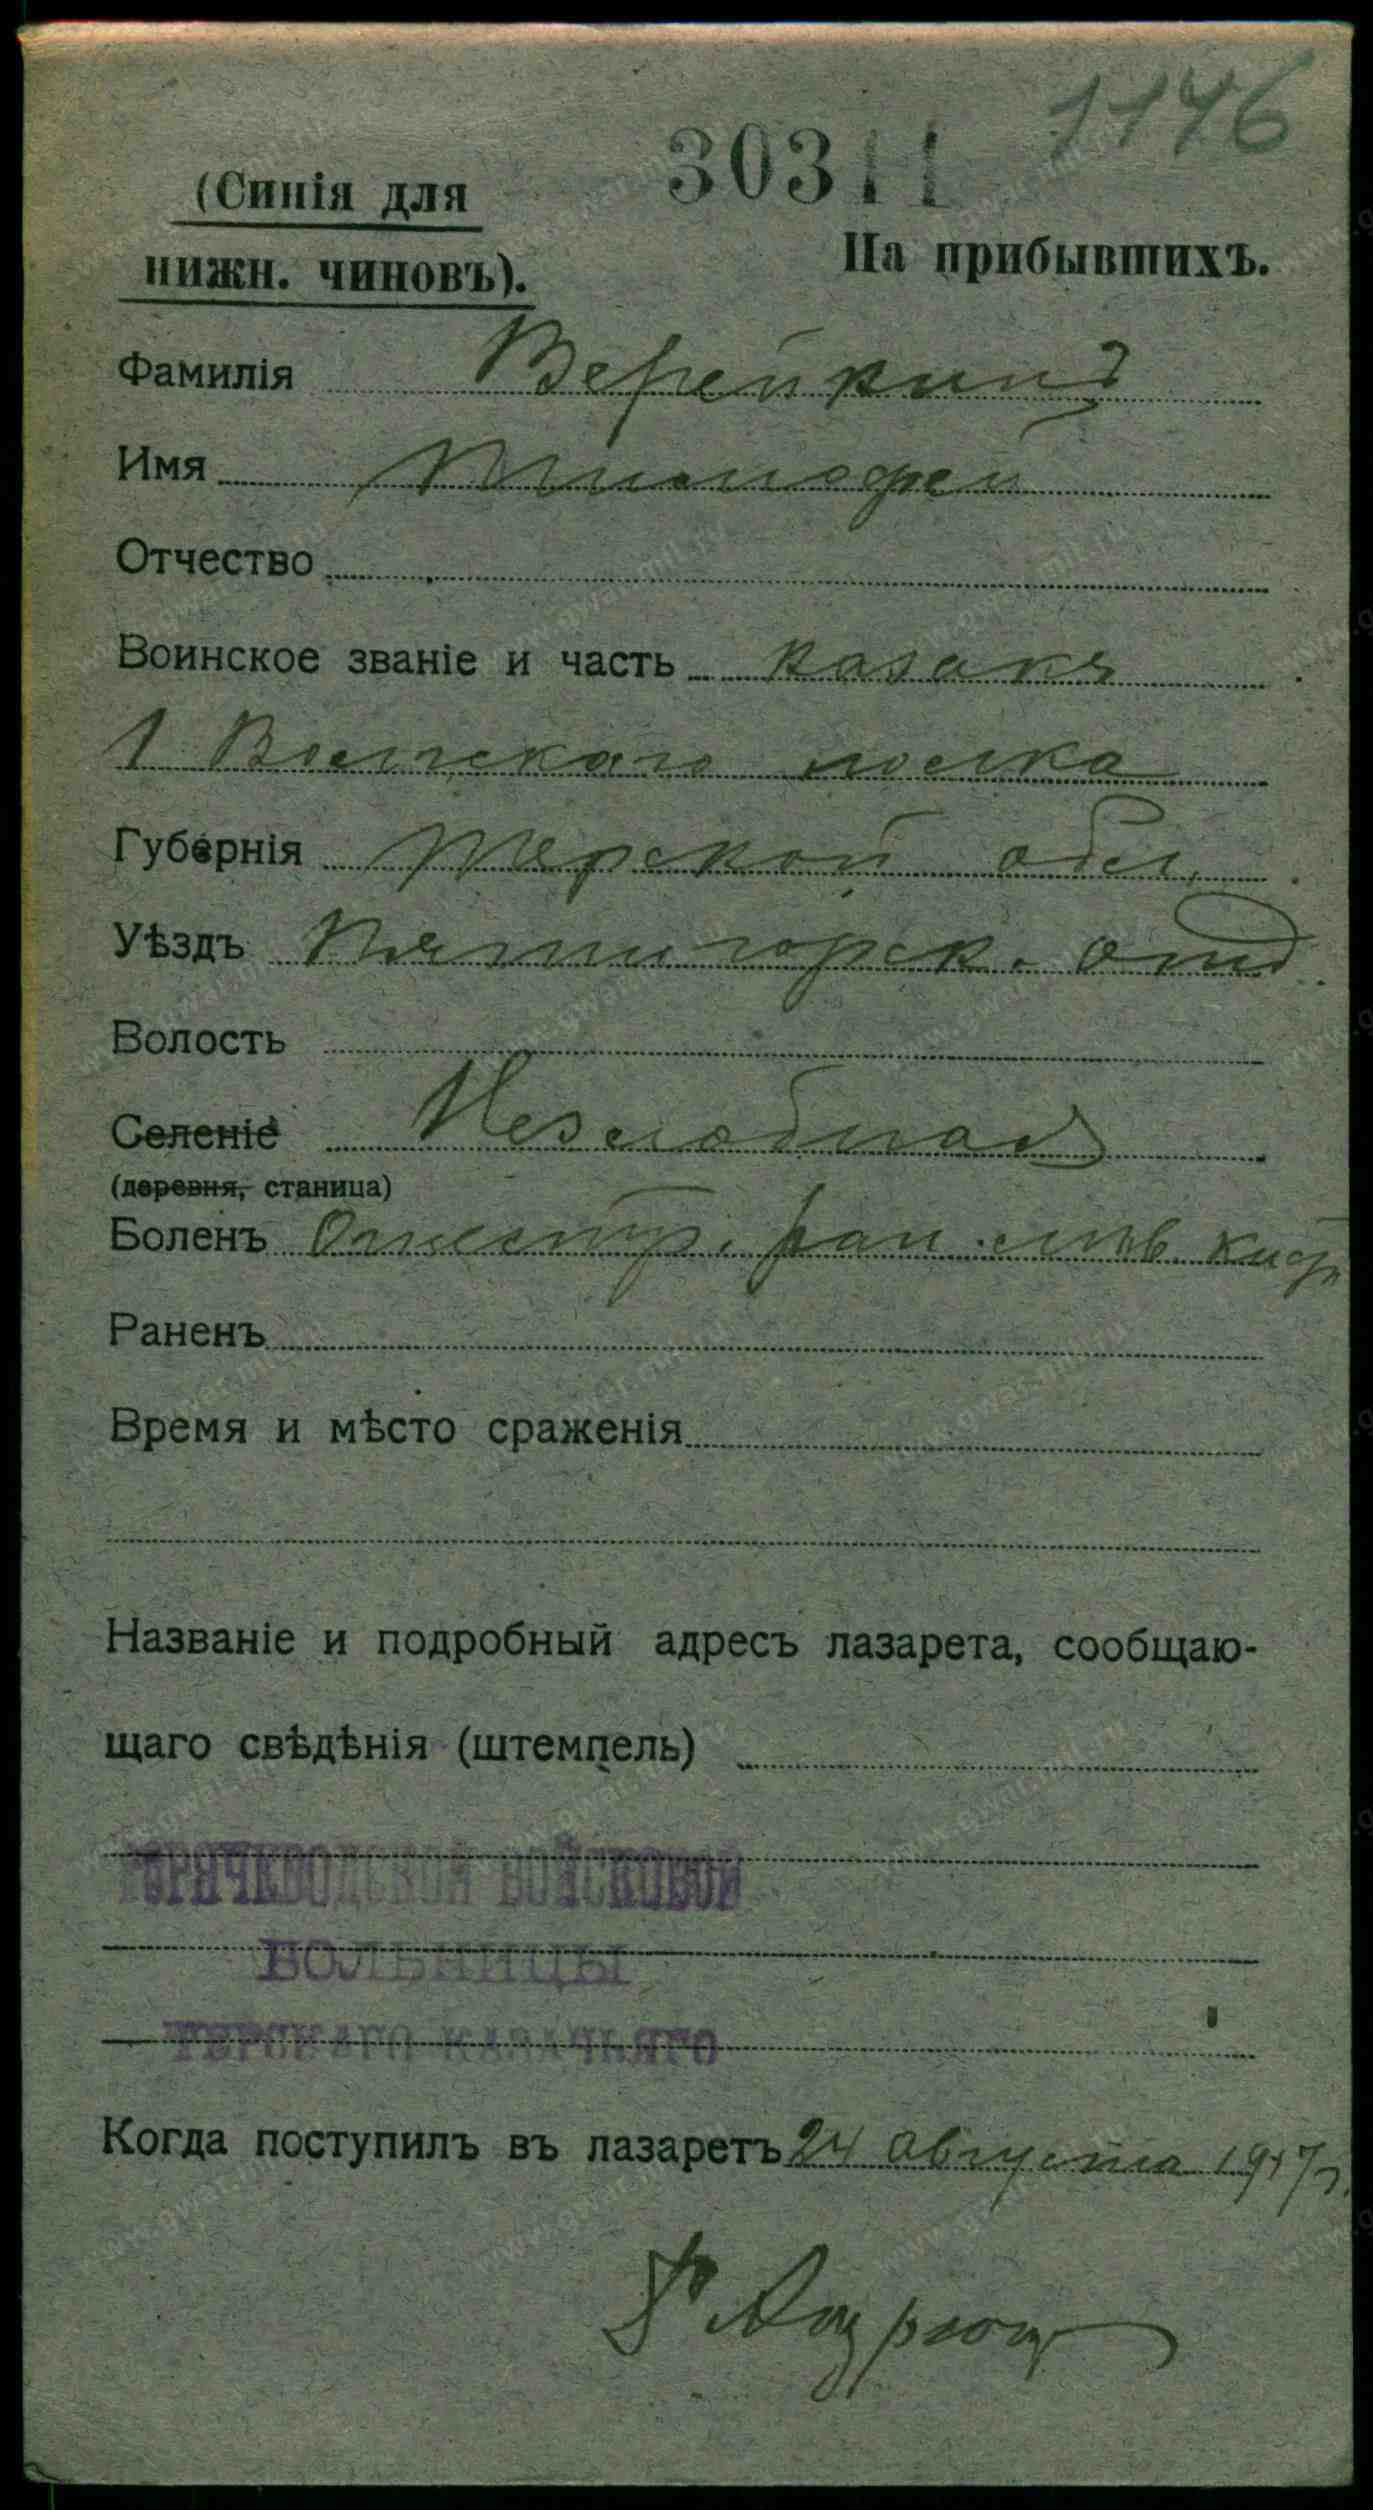 1146
30311
(Синія для
нижн. чиновъ).
На прибывшихъ.
Фамилія Верейкинъ
Имя Тимофей
Отчество
Воинское званіе и часть казакъ
1 Волгскаго полка
Губернія Терской обл.
Уѣздъ Пятигорск. отд.
Волость
Селеніе Незлобная
(деревня, станица)
Боленъ Огнестр. ран. лѣв.
Раненъ
Время и мѣсто сраженія
Названіе и подробный адресъ лазарета, сообщаю-
щаго свѣдѣнія (штемпель)
ГОРЯЧЕВОДСКОЙ ВОЙСКОВОЙ
БОЛЬНИЦЫ
ТЕРСКАГО КАЗАЧЬЯГО
Когда поступилъ въ лазаретъ 24 августа 1917 г.